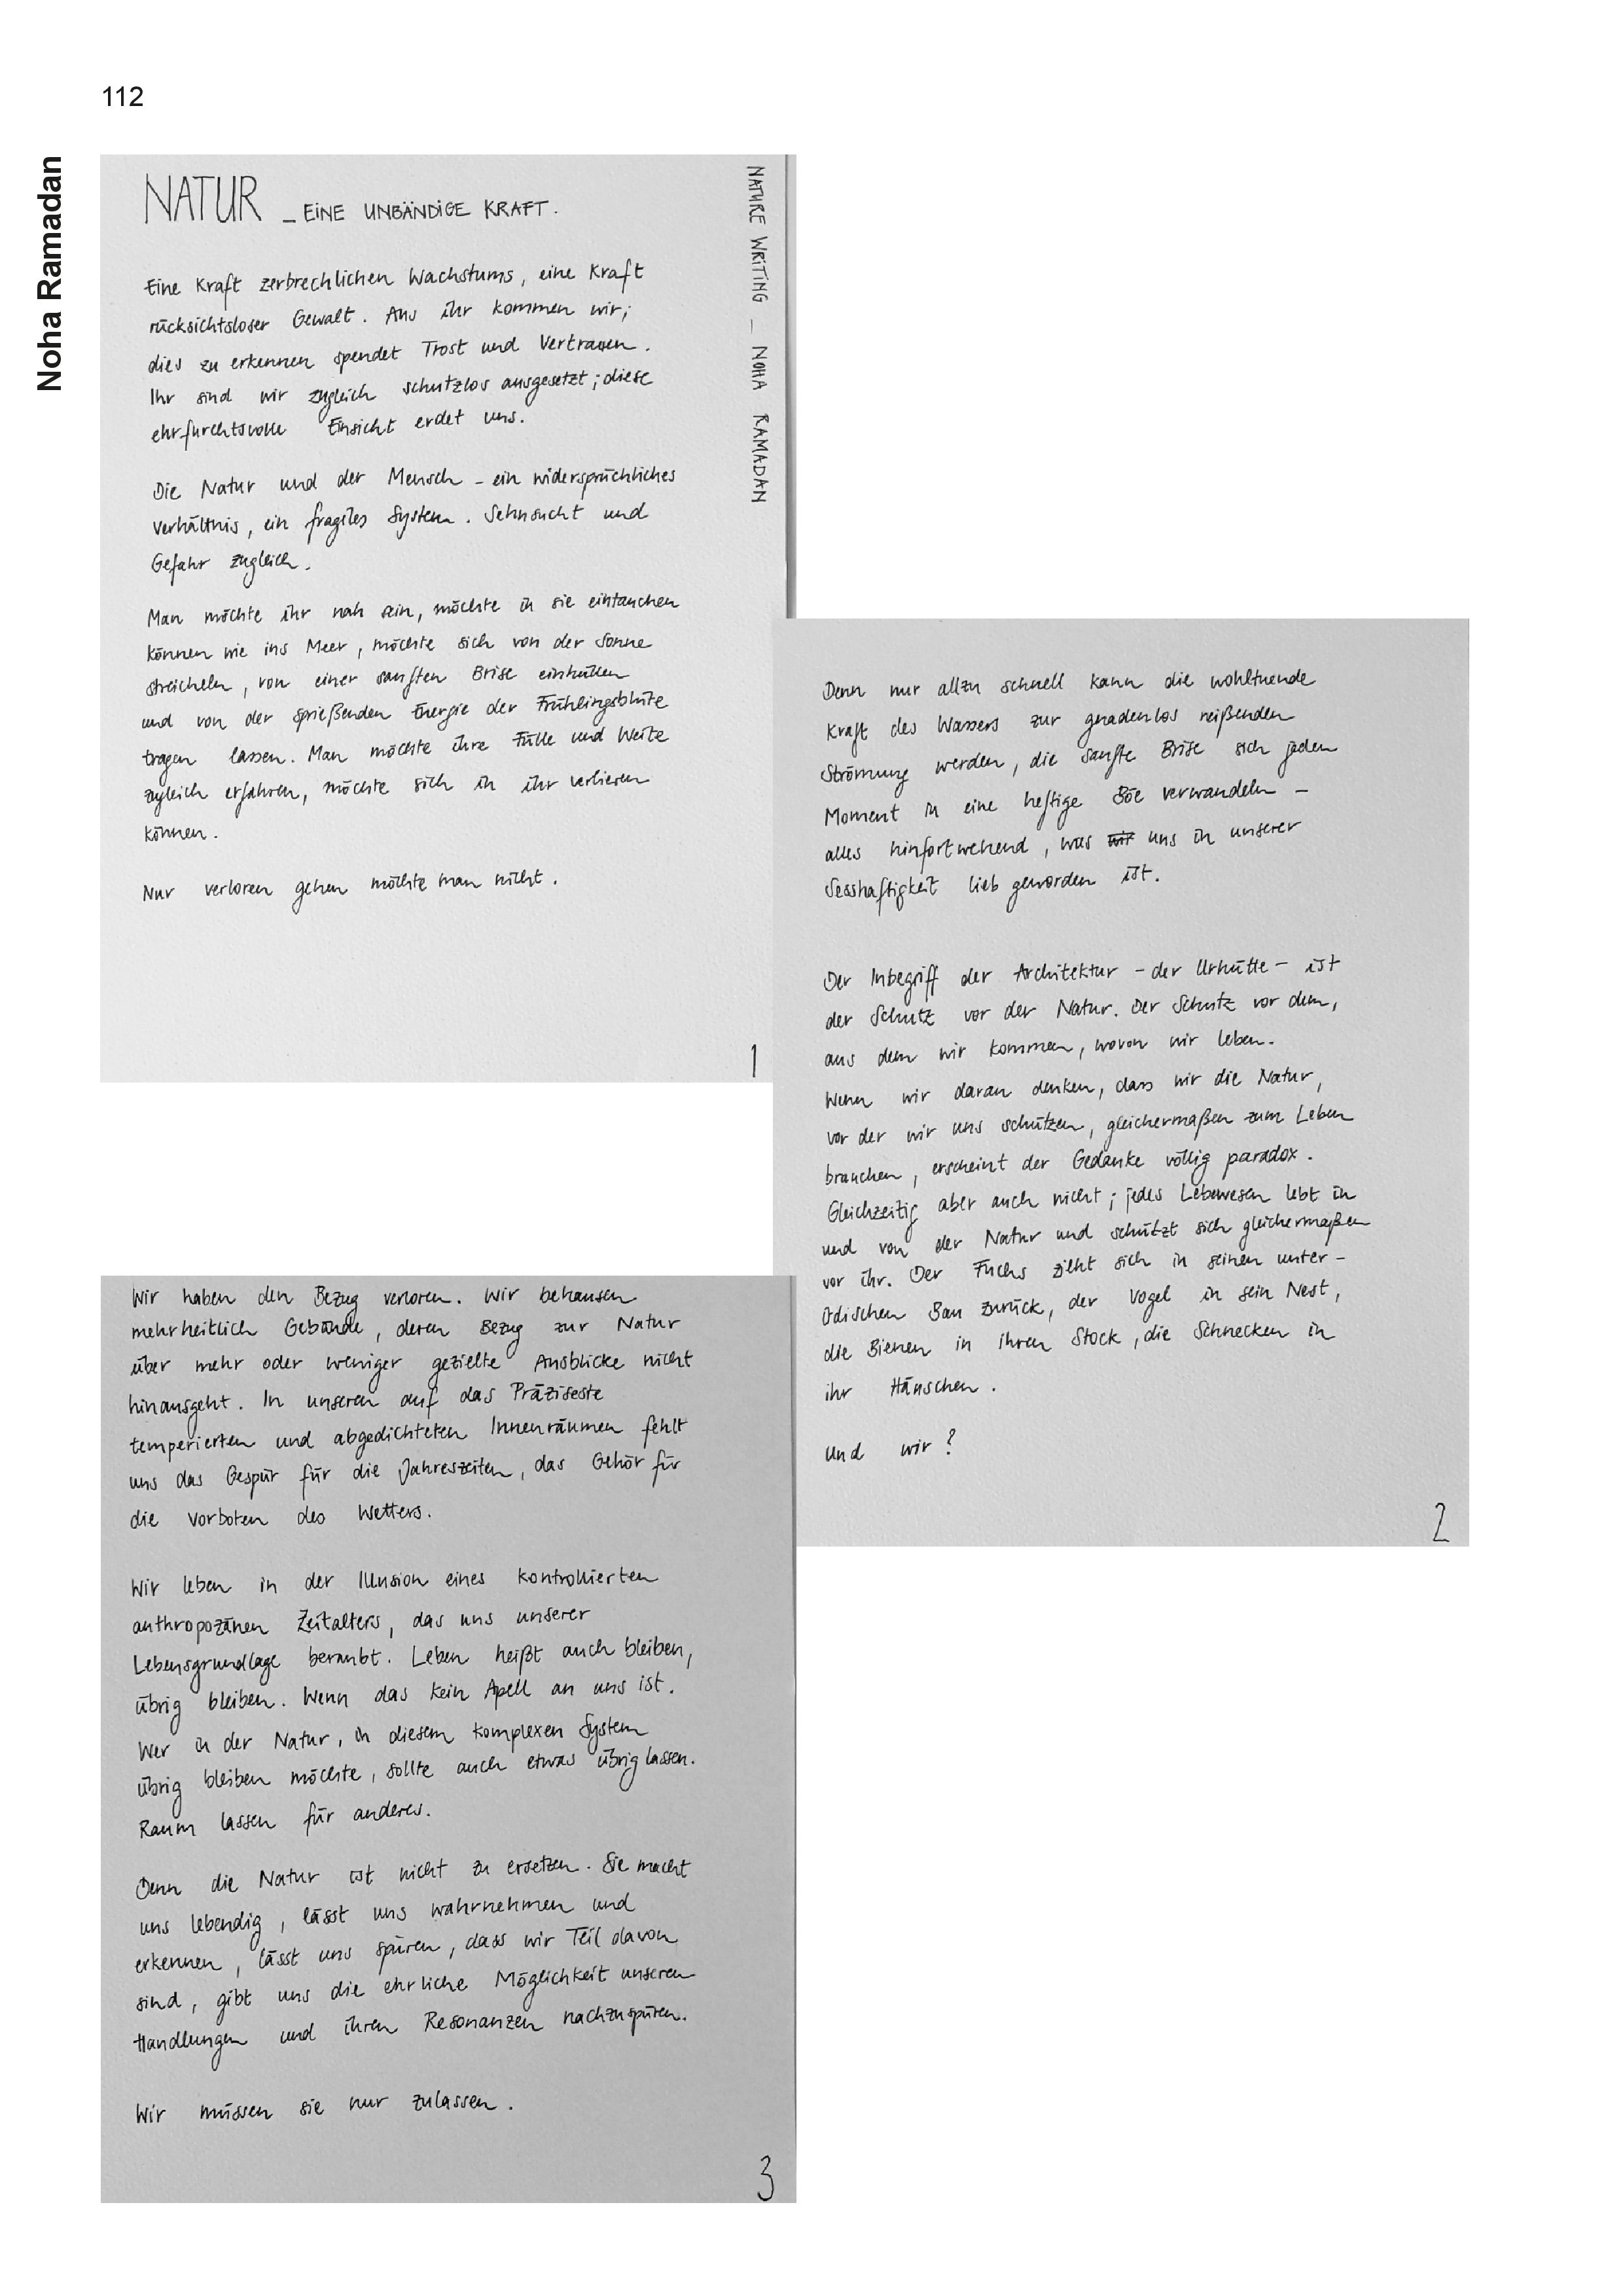 112
Noha Ramadan
NATUR _ EINE UNBÄNDIGE KRAFT.
NATURE WRITING _ NOHA RAMADAN
Eine Kraft zerbrechlichen Wachstums, eine Kraft
rücksichtsloser Gewalt. Aus ihr kommen wir;
dies zu erkennen spendet Trost und Vertrauen.
Ihr sind wir zugleich schutzlos ausgesetzt; diese
ehrfurchtsvolle Einsicht erdet uns.
Die Natur und der Mensch – ein widersprüchliches
Verhältnis, ein fragiles System. Sehnsucht und
Gefahr zugleich.
Man möchte ihr nah sein, möchte in sie eintauchen
können wie ins Meer, möchte sich von der Sonne
streicheln, von einer sanften Brise einhüllen
und von der sprießenden Energie der Frühlingsblüte
tragen lassen. Man möchte ihre Fülle und Weite
zugleich erfahren, möchte sich in ihr verlieren
können.
Nur verloren gehen möchte man nicht.
1
Denn nur allzu schnell kann die wohltuende
Kraft des Wassers zur gnadenlos reißenden
Strömung werden, die sanfte Brise sich jeden
Moment in eine heftige Böe verwandeln –
alles hinfortwehend, was wir uns in unserer
Sesshaftigkeit lieb geworden ist.
Der Inbegriff der Architektur – der Urhütte – ist
der Schutz vor der Natur. Der Schutz vor dem,
aus dem wir kommen, wovon wir leben.
Wenn wir daran denken, dass wir die Natur,
vor der wir uns schützen, gleichermaßen zum Leben
brauchen, erscheint der Gedanke völlig paradox.
Gleichzeitig aber auch nicht; jedes Lebewesen lebt in
und von der Natur und schützt sich gleichermaßen
vor ihr. Der Fuchs zieht sich in seinen unter-
irdischen Bau zurück, der Vogel in sein Nest,
die Bienen in ihren Stock, die Schnecken in
ihr Häuschen.
Und wir?
2
Wir haben den Bezug verloren. Wir behausen
mehrheitlich Gebäude, deren Bezug zur Natur
über mehr oder weniger gezielte Ausblicke nicht
hinausgeht. In unseren auf das Präziseste
temperierten und abgedichteten Innenräumen fehlt
uns das Gespür für die Jahreszeiten, das Gehör für
die Vorboten des Wetters.
Wir leben in der Illusion eines kontrollierten
anthropozänen Zeitalters, das uns unserer
Lebensgrundlage beraubt. Leben heißt auch bleiben,
übrig bleiben. Wenn das kein Apell an uns ist.
Wer in der Natur, in diesem komplexen System
übrig bleiben möchte, sollte auch etwas übrig lassen.
Raum lassen für anderes.
Denn die Natur ist nicht zu ersetzen. Sie macht
uns lebendig, lässt uns wahrnehmen und
erkennen, lässt uns spüren, dass wir Teil davon
sind, gibt uns die ehrliche Möglichkeit unseren
Handlungen und ihren Resonanzen nachzuspüren.
Wir müssen sie nur zulassen.
3